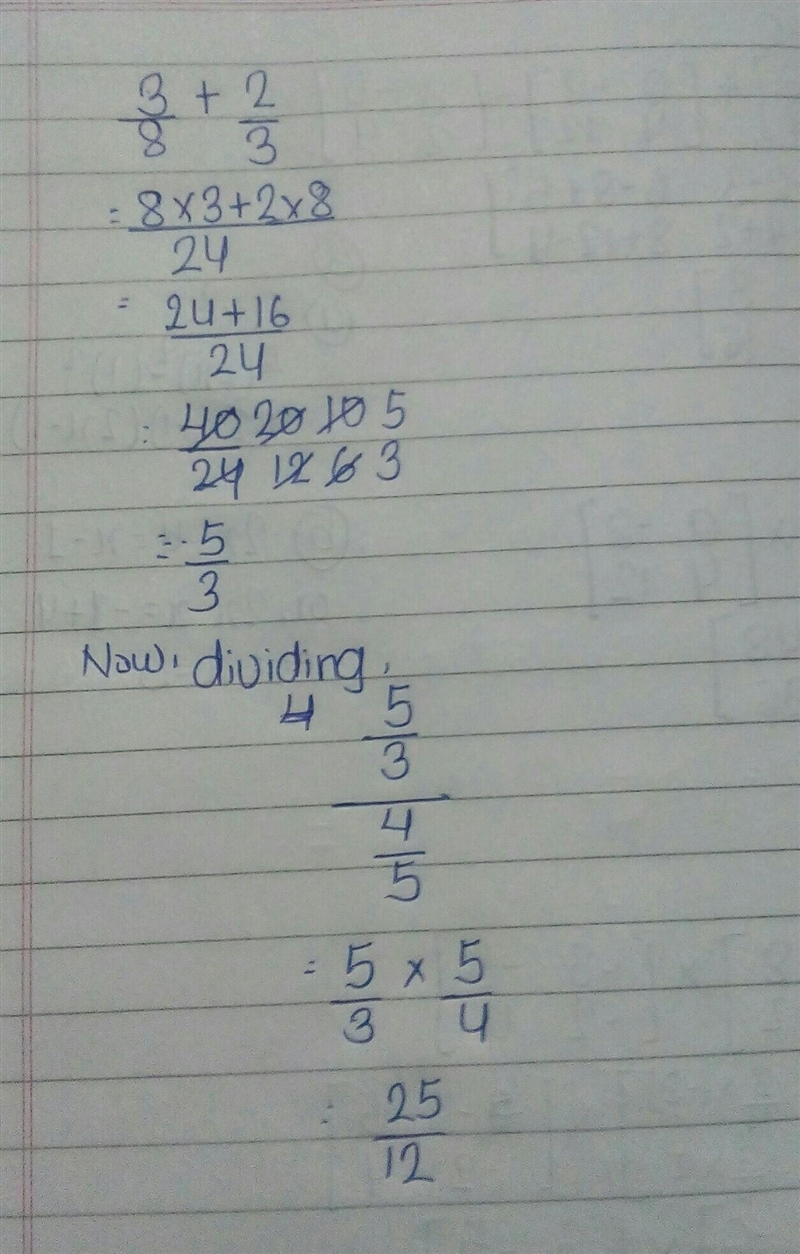 3/8 + 2/3
= 8×3+2×8 / 24
= 24+16 / 24
= 40/24 20/12 10/6 5/3
= 5/3
Now, dividing,
4 5/3 / 4/5
= 5/3 × 5/4
= 25/12